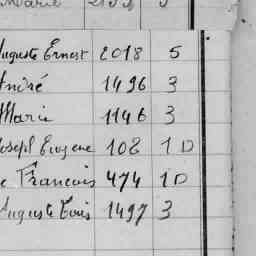 Auguste Ernest 2018 5
André 1496 3
Marie 1146 3
Joseph Eugene 108 1 D
François 474 1 D
Auguste Louis 1497 3